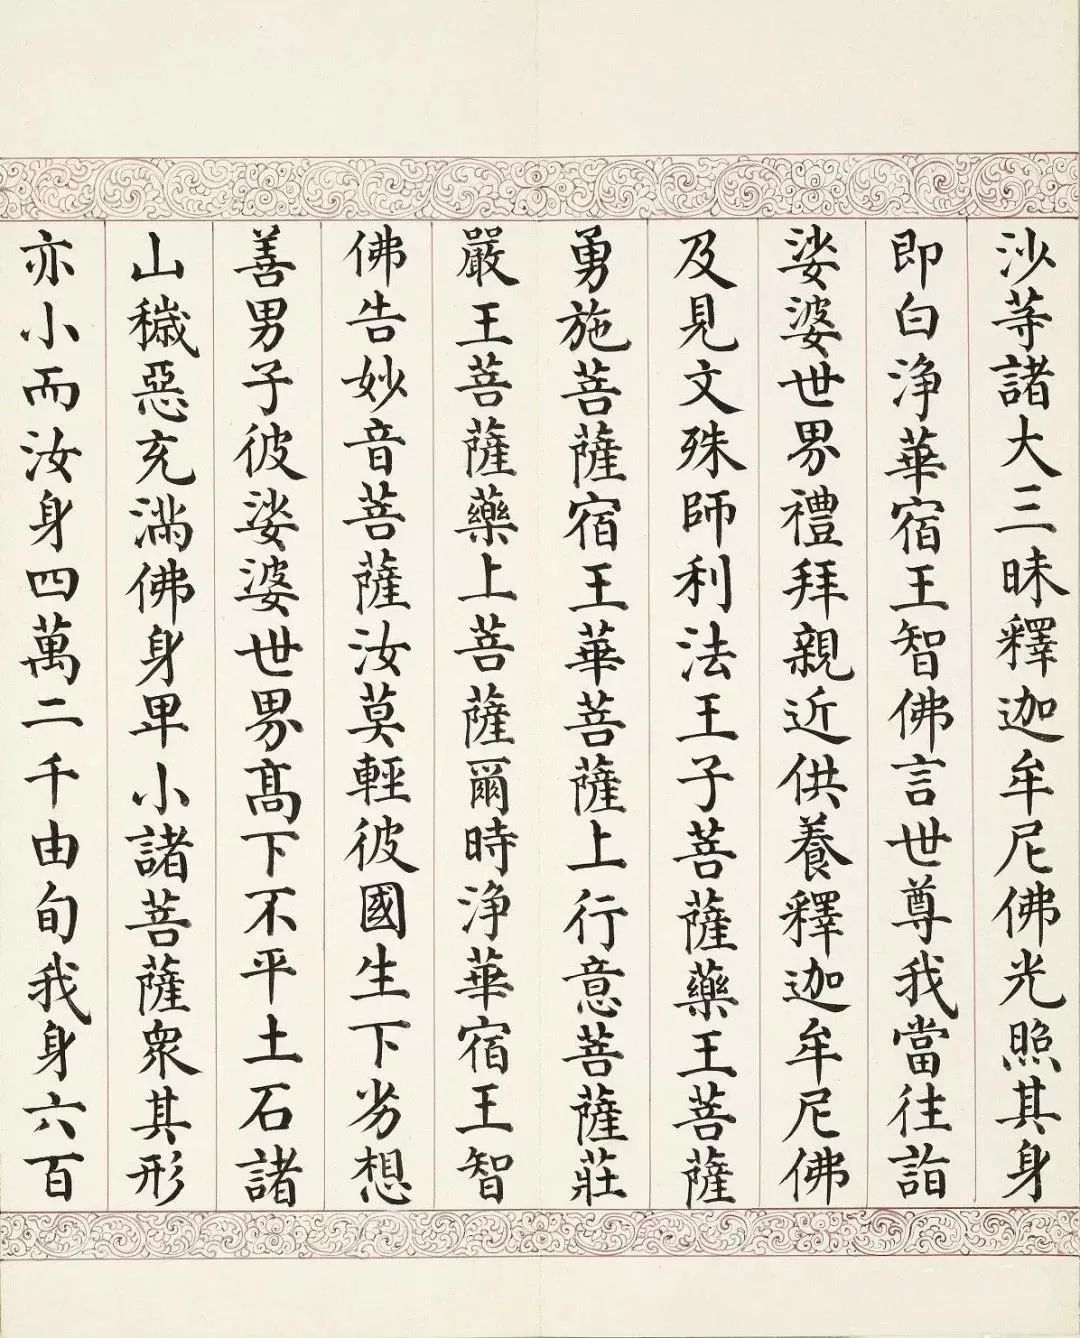 沙等諸大三昧釋迦牟尼佛光照其身
即白淨華宿王智佛言世尊我當往詣
娑婆世界禮拜親近供養釋迦牟尼佛
及見文殊師利法王子菩薩藥王菩薩
勇施菩薩宿王華菩薩上行意菩薩莊
嚴王菩薩藥上菩薩爾時淨華宿王智
佛告妙音菩薩汝莫輕彼國生下劣想
善男子彼娑婆世界髙下不平土石諸
山穢惡充滿佛身卑小諸菩薩衆其形
亦小而汝身四萬二千由旬我身六百